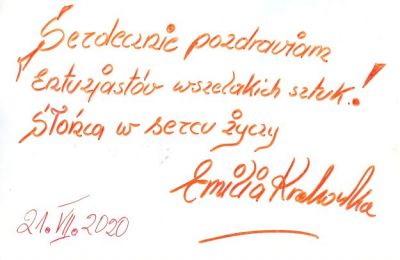 Serdecznie pozdrawiam
Entuzjastów wszelakich sztuk!
Słońca w sercu życzy
Emilia Krakowska
21.VII.2020